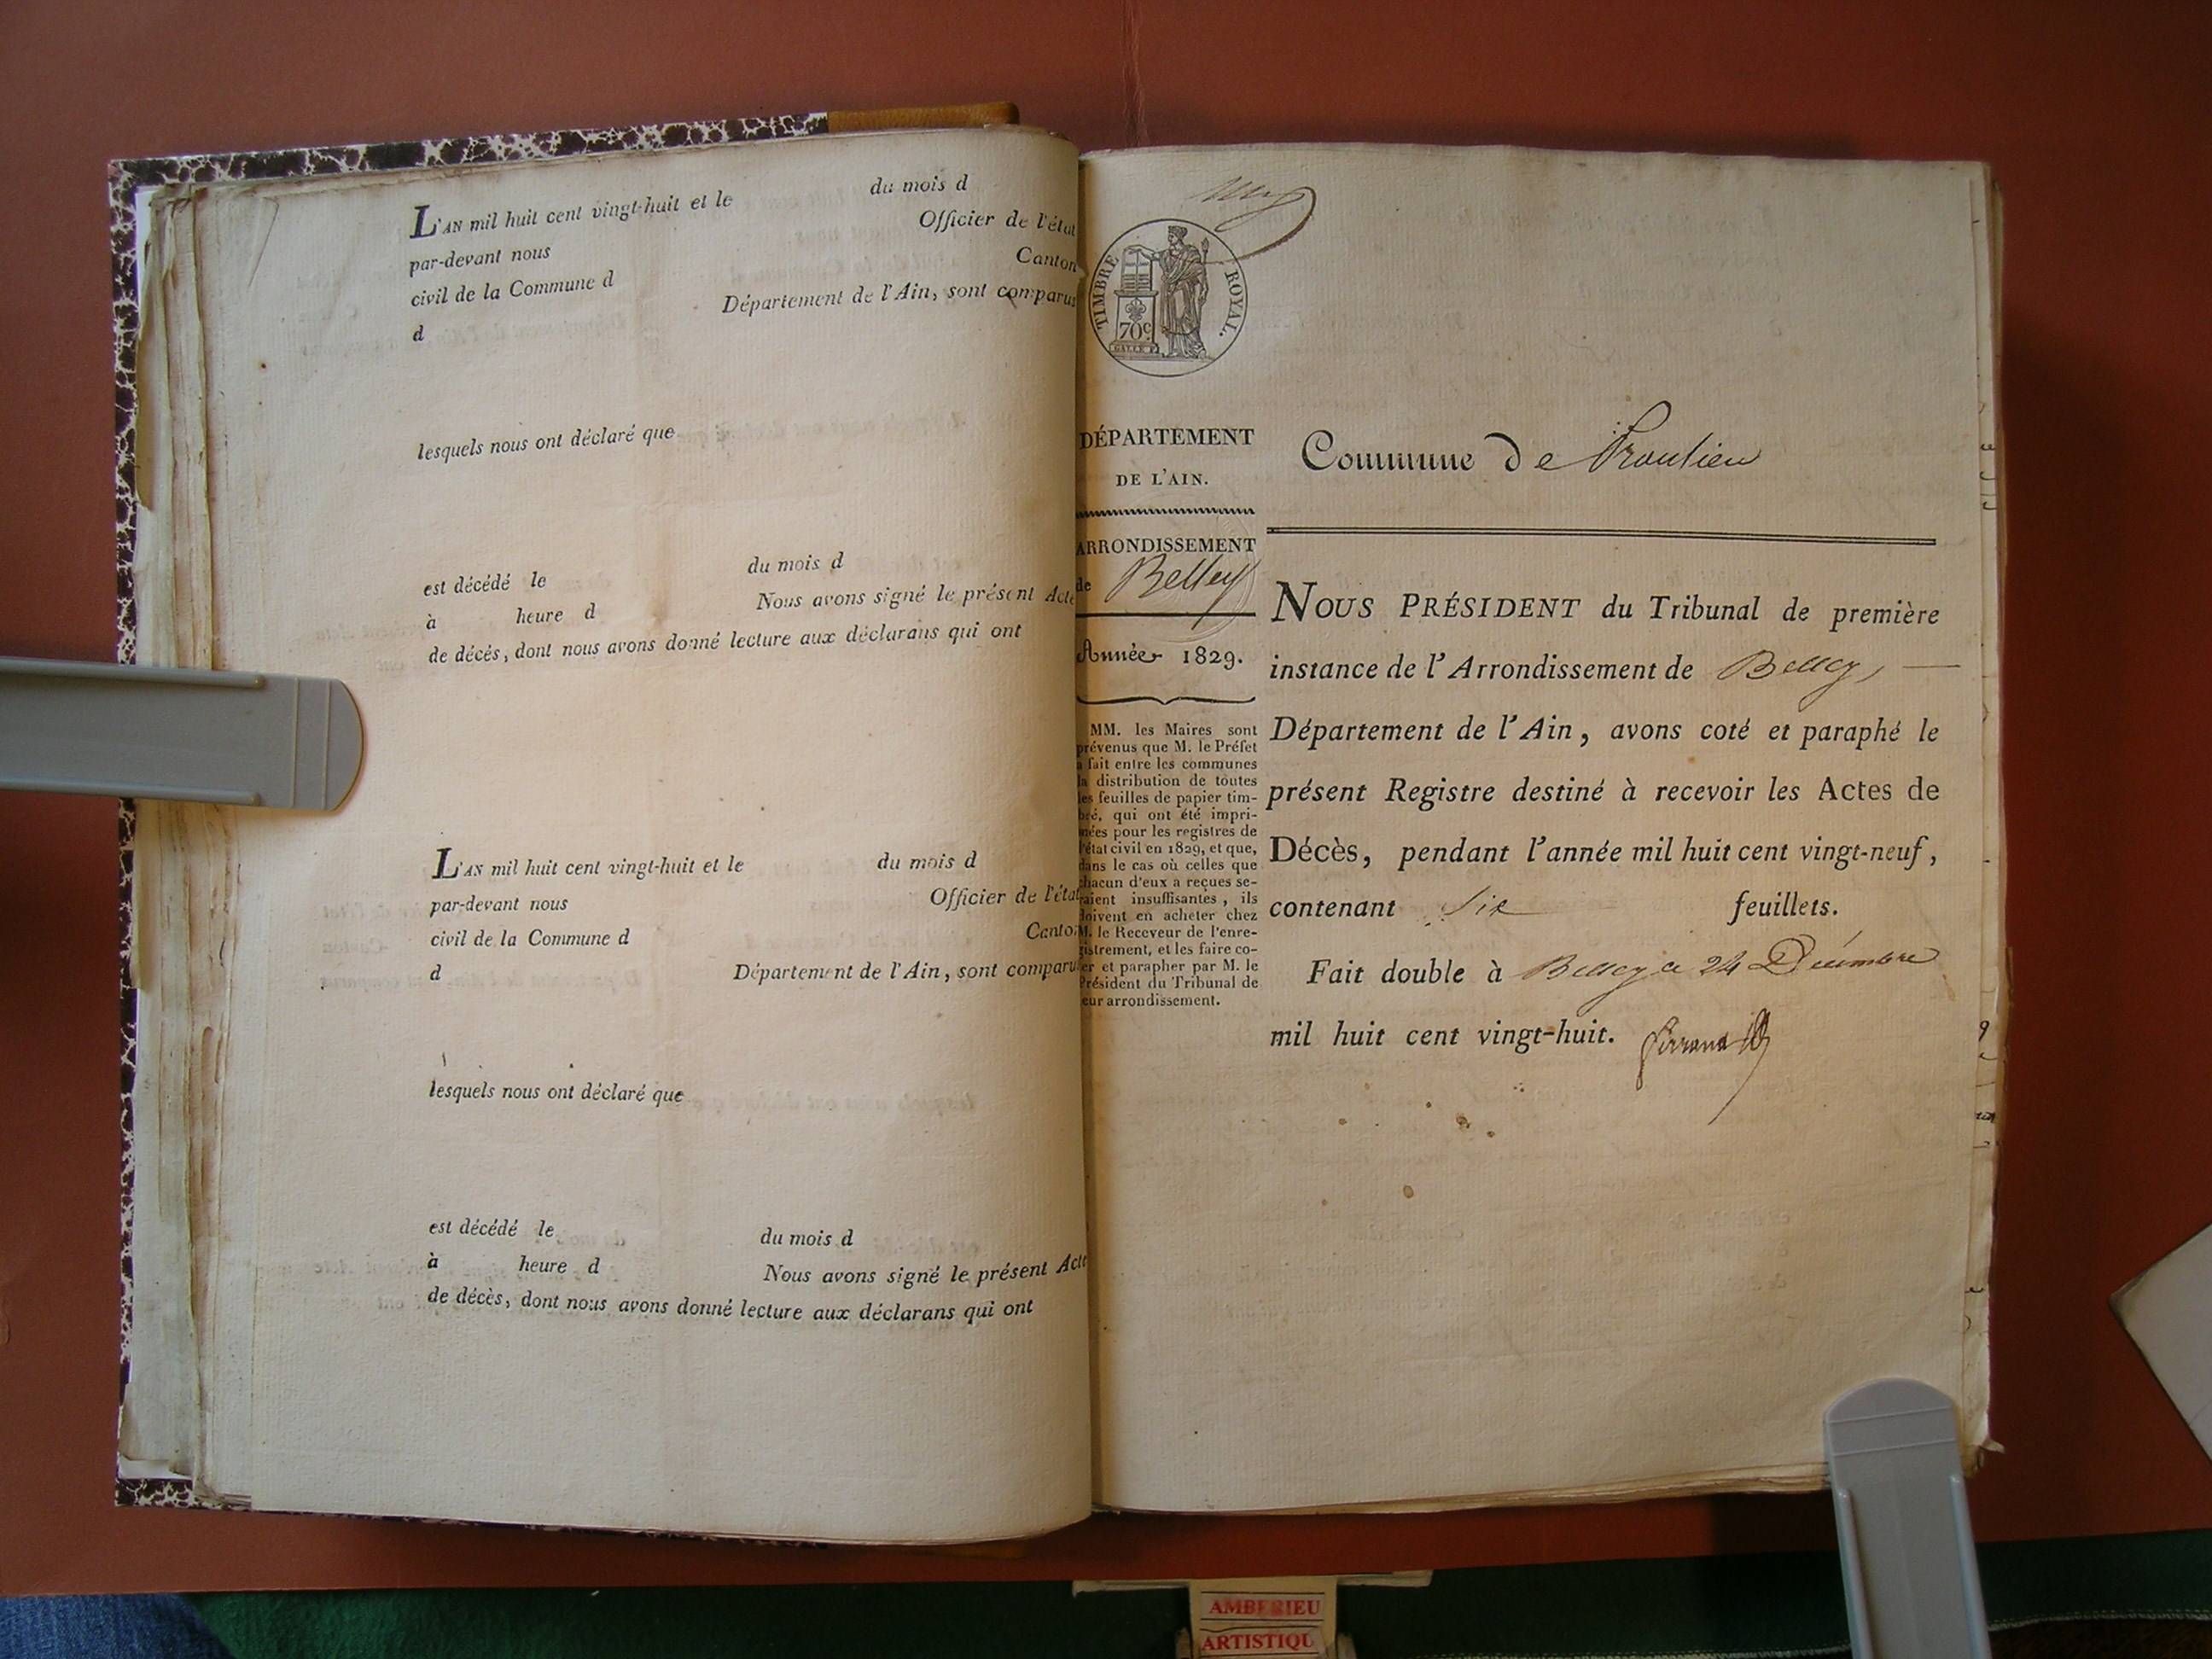 L'AN mil huit cent vingt-huit et le du mois d
par-devant nous Officier de l'état
civil de la Commune d Canton
d Département de l'Ain, sont comparus
lesquels nous ont déclaré que
est décédé le du mois d
à heure d Nous avons signé le présent Acte
de décès, dont nous avons donné lecture aux déclarans qui ont
L'AN mil huit cent vingt-huit et le du mois d
par-devant nous Officier de l'état
civil de la Commune d Canton
d Département de l'Ain, sont comparu
lesquels nous ont déclaré que
est décédé le du mois d
à heure d Nous avons signé le présent Acte
de décès, dont nous avons donné lecture aux déclarans qui ont
TIMBRE ROYAL.
70c
DÉPARTEMENT
DE L'AIN.
ARRONDISSEMENT
de Belley
Année 1829.
MM. les Maires sont
prévenus que M. le Préfet
a fait entre les communes
la distribution de toutes
les feuilles de papier tim-
bré, qui ont été impri-
mées pour les registres de
l'état civil en 1829, et que,
dans le cas où celles que
chacun d'eux a reçues se-
raient insuffisantes, ils
doivent en acheter chez
M. le Receveur de l'enre-
gistrement, et les faire co-
ter et parapher par M. le
Président du Tribunal de
leur arrondissement.
Commune de Proulieu
NOUS PRÉSIDENT du Tribunal de première
instance de l'Arrondissement de Belley,
Département de l'Ain, avons coté et paraphé le
présent Registre destiné à recevoir les Actes de
Décès, pendant l'année mil huit cent vingt-neuf,
contenant Six feuillets.
Fait double à Belley ce 24 Décembre
mil huit cent vingt-huit.
AMBERIEU
ARTISTIQU